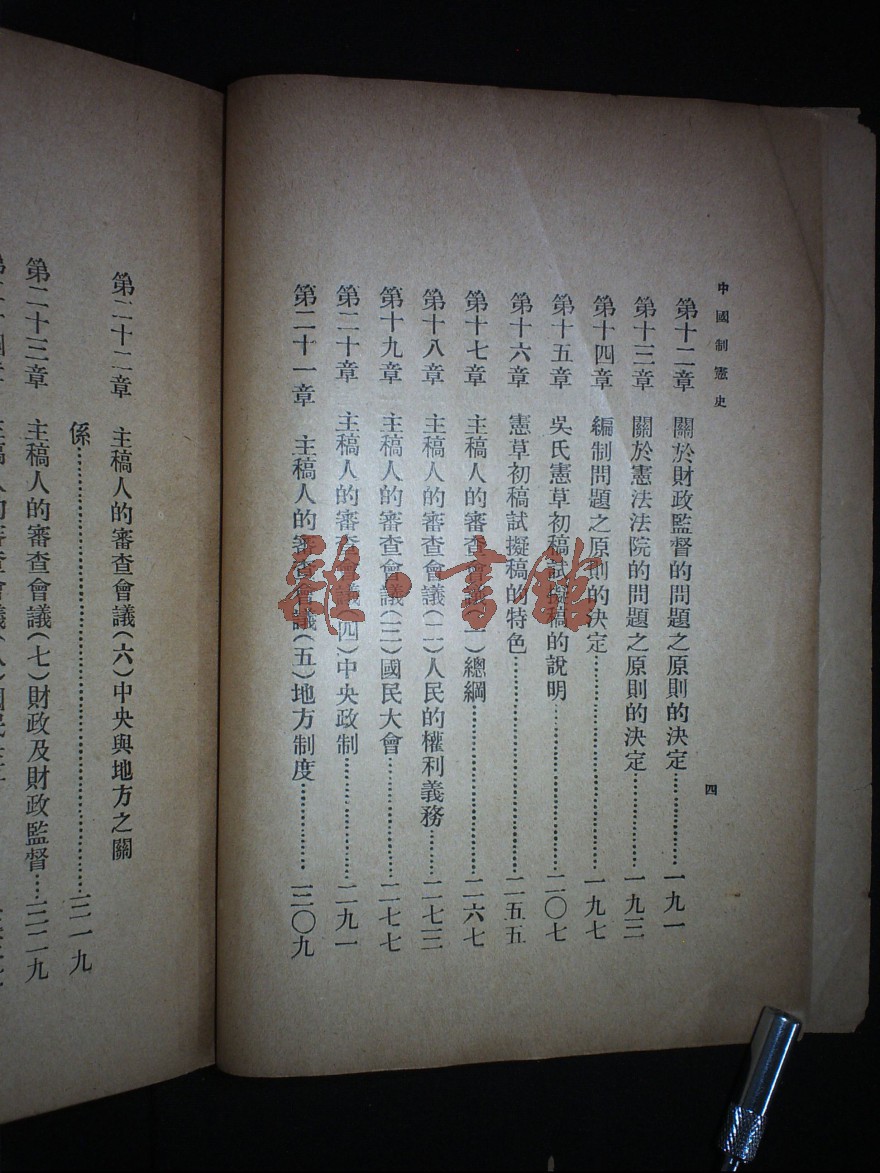 中國制憲史
第十二章　關於財政監督的問題之原則的決定…………一九一
第十三章　關於憲法法院的問題之原則的決定…………一九三
第十四章　編制問題之原則的決定…………一九七
第十五章　吳氏憲草初稿試擬稿的說明…………二〇七
第十六章　憲草初稿試擬稿的特色…………二五五
第十七章　主稿人的審查會議(一)總綱…………二六七
第十八章　主稿人的審查會議(二)人民的權利義務……二七三
第十九章　主稿人的審查會議(三)國民大會…………二七七
第二十章　主稿人的審查會議(四)中央政制…………二九一
第二十一章　主稿人的審查會議(五)地方制度…………三〇九
四
第二十二章　主稿人的審查會議(六)中央與地方之關
係…………三一九
第二十三章　主稿人的審查會議(七)財政及財政監督…三二九
雜·書館